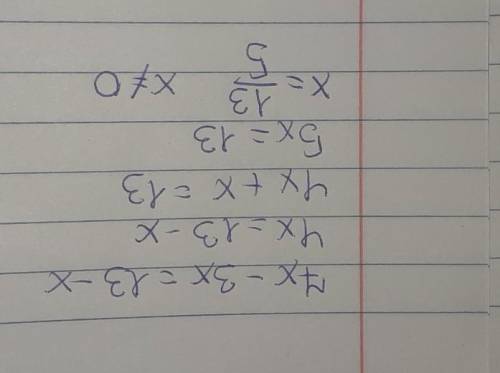 7x - 3x = 13 - x
4x = 13 - x
4x + x = 13
5x = 13
x = 13/5 x ≠ 0